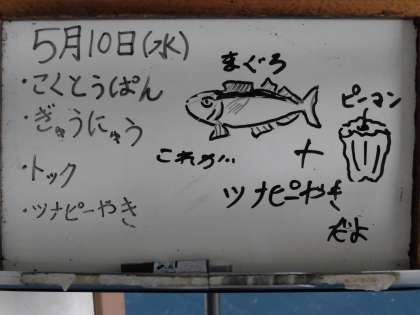 5月10日(水)
・こくとうぱん
・ぎゅうにゅう
・トック
・ツナピーやき
まぐろ
ピーマン
これが…
+
ツナピーやき
だよ